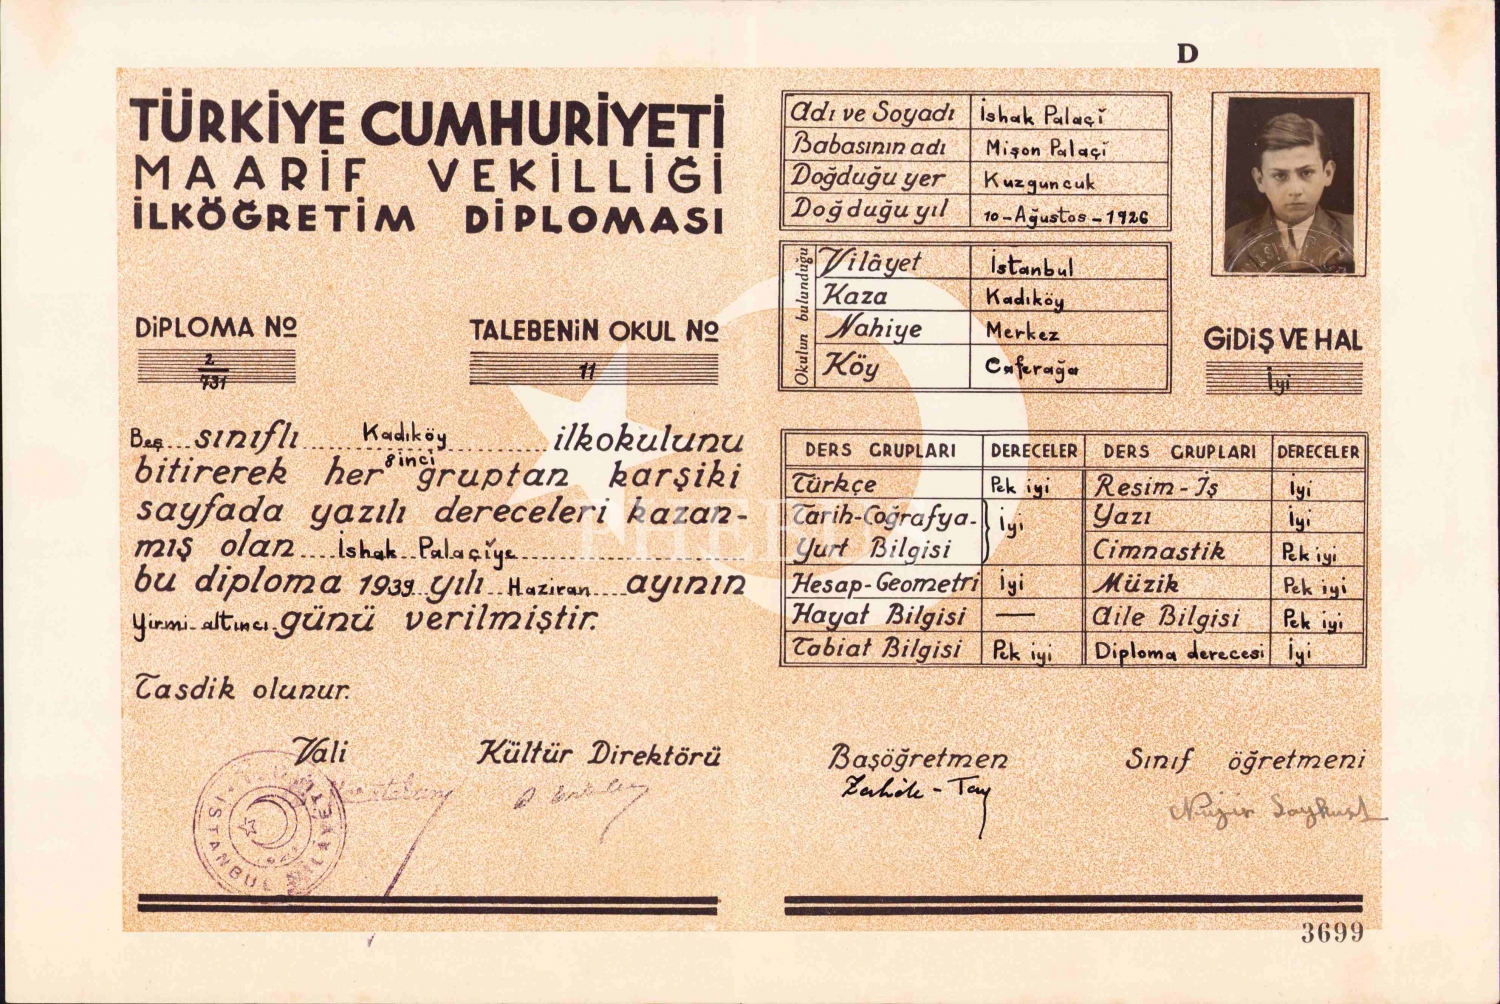 D
TÜRKİYE CUMHURİYETİ
MAARİF VEKİLLİĞİ
İLKÖĞRETİM DİPLOMASI
DİPLOMA No
2
731
TALEBENİN OKUL No
11
Beş sınıflı Kadıköy ilkokulunu
8 inci
bitirerek her gruptan karşıki
sayfada yazılı dereceleri kazan-
mış olan İshak Palaçiye
bu diploma 1939 yılı Haziran ayının
Yirmi altıncı günü verilmiştir.
Tasdik olunur.
Vali
Kültür Direktörü
İSTANBUL VİLAYETİ
Adı ve Soyadı İshak Palaçi
Babasının adı Mişon Palaçi
Doğduğu yer Kuzguncuk
Doğduğu yıl 10-Ağustos-1926
Okulun bulunduğu
Vilâyet İstanbul
Kaza Kadıköy
Nahiye Merkez
Köy Caferağa
GİDİŞ VE HAL
İyi
DERS GRUPLARI DERECELER DERS GRUPLARI DERECELER
Türkçe Pek iyi Resim-İş İyi
Tarih-Coğrafya- İyi Yazı İyi
Yurt Bilgisi Cimnastik Pek iyi
Hesap-Geometri İyi Müzik Pek iyi
Hayat Bilgisi — Aile Bilgisi Pek iyi
Tabiat Bilgisi Pek iyi Diploma derecesi İyi
Başöğretmen
Zahide - Tay
Sınıf öğretmeni
3699